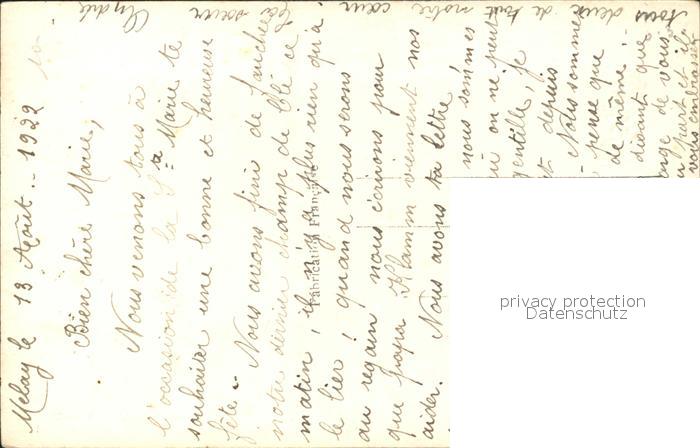 Melay le 13 Août. 1922
Bien chère Marie,
Nous venons tous à
l'occasion de la Ste Marie te
souhaiter une bonne et heureuse
fête. Nous avons fini de faucher
notre dernier champ de blé ce
matin, il n'y a plus rien qu'à
le lier, quand nous serons
au regain nous écrirons pour
que papa viennent nos
aider. Nous avons ta lettre
nous sommes
on ne peut
gentille, je
et depuis
Nous sommes
pense que
de même
disant que
de vous
part et
tous deux de tout notre cœur
Ta sœur
Fabrication Française
privacy protection
Datenschutz